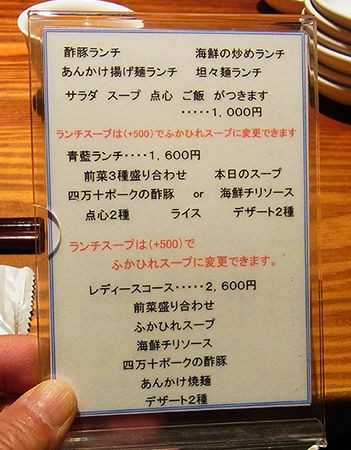 酢豚ランチ 海鮮の炒めランチ
あんかけ揚げ麺ランチ 坦々麺ランチ
サラダ スープ 点心 ご飯 がつきます
‥‥‥1,000円
ランチスープは(+500)でふかひれスープに変更できます
青藍ランチ‥‥1,600円
前菜3種盛り合わせ 本日のスープ
四万十ポークの酢豚 or 海鮮チリソース
点心2種 ライス デザート2種
ランチスープは(+500)で
ふかひれスープに変更できます。
レディースコース‥‥‥2,600円
前菜盛り合わせ
ふかひれスープ
海鮮チリソース
四万十ポークの酢豚
あんかけ焼麺
デザート2種